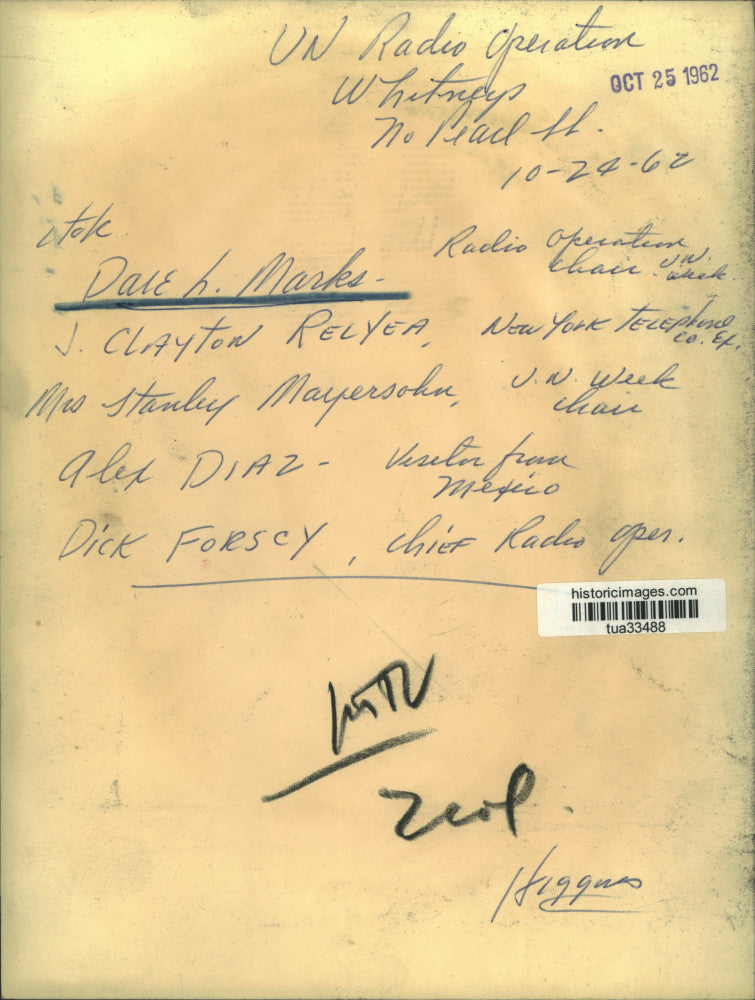 UN Radio Operation
Whitneys
OCT 25 1962
No Pearl St.
10-24-62
Dale L. Marks -
Radio Operation
chair. U.N. Week
J. CLAYTON RELYEA, New York Telephone
Co. Ex.
Mrs Stanley Mayersohn, U.N. Week
chair
Alex DIAZ - Visitor from
Mexico
Dick FORSCY, Chief Radio oper.
historicimages.com
tua33488
2 col.
Higgins